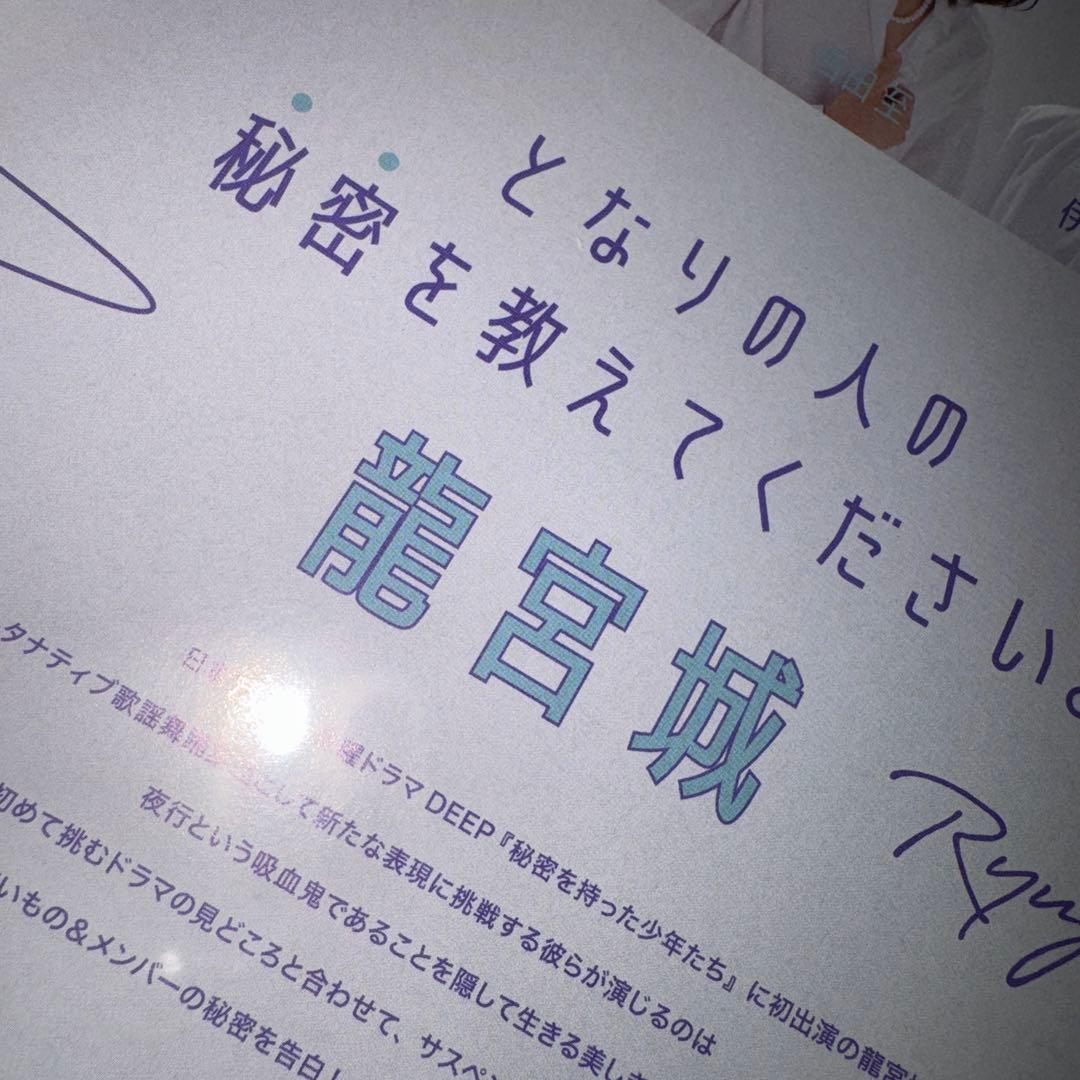 由至
伊
となりの人の
秘密を教えてください。
龍宮城
Ryu
曜ドラマ DEEP『秘密を持った少年たち』に初出演の龍宮
タナティブ歌謡舞踊 として新たな表現に挑戦する彼らが演じるのは
夜行という吸血鬼であることを隠して生きる美し
初めて挑むドラマの見どころと合わせて、サスペン
いもの＆メンバーの秘密を告白！